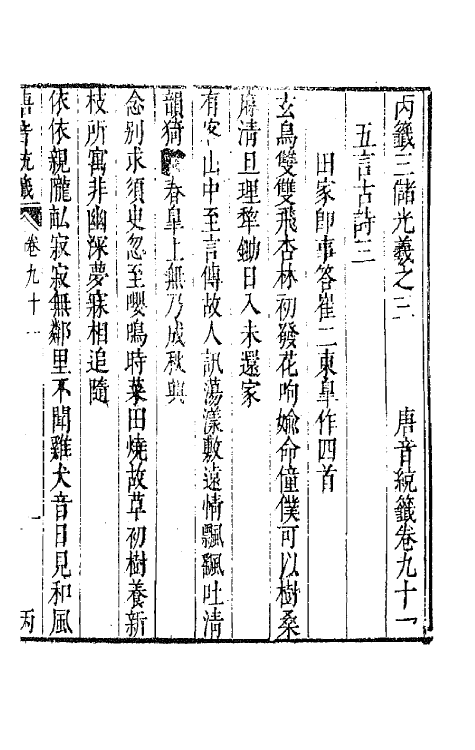 丙籤三儲光羲之三　唐音統籤卷九十一
五言古詩三
田家即事答崔二東皐作四首
玄鳥雙雙飛杏林初發花呴媮命僮僕可以樹桑
麻清旦理犂鋤日入未還家
有客山中至言傳故人訊蕩漾敷遠情飄飄吐清
韻猗春皐上無乃成秋興
念别求須臾忽至嚶鳴時菜田燒故草初樹養新
枝所寓非幽深夢寐相追隨
依依親隴畝寂寂無鄰里不聞雞犬音日見和風
唐音統籤　卷九十一　一　丙